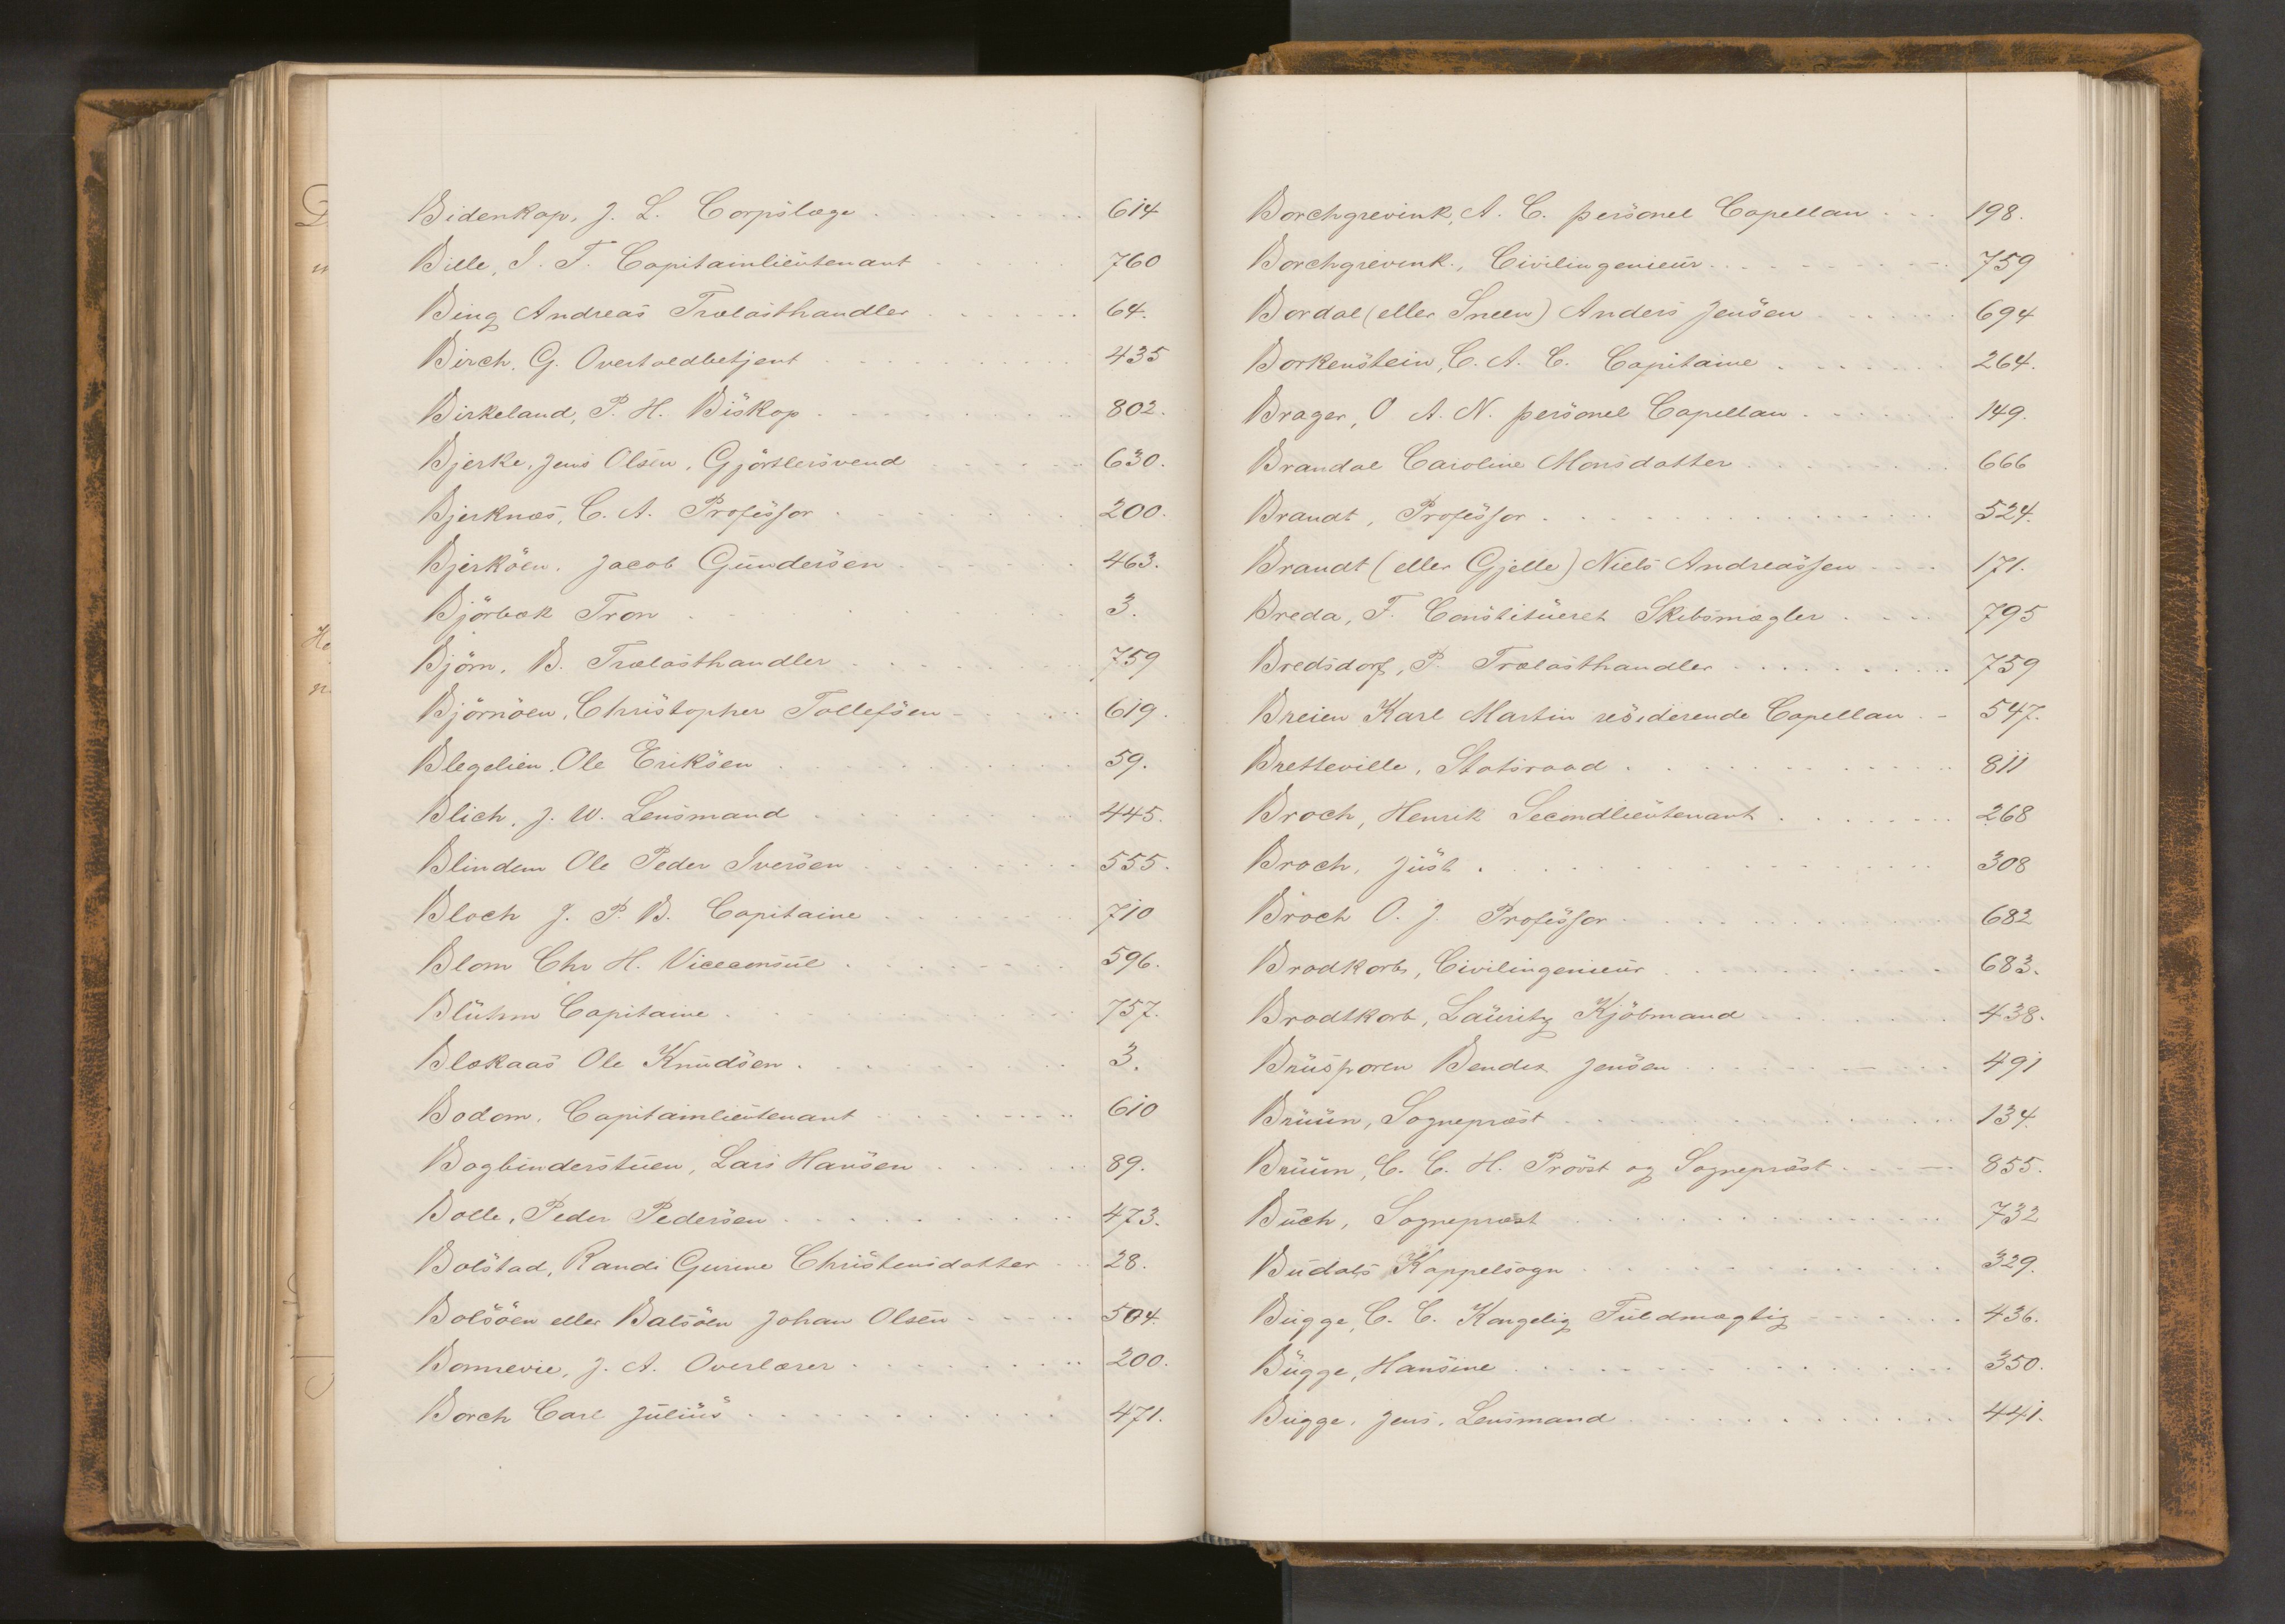 Bidenkap, J. L. Corpslæge 614
Bille, J. F. Capitainlieutenant 760
Bing Andreas Trælasthandler 64.
Birch, G. Overtoldbetjent 435
Birkeland, P. H. Biskop 802.
Bjerke, Jens Olsen, Gjørtlersvend 630.
Bjerknæs, C. A. Professor 200.
Bjerköen, Jacob Gundersen 463.
Björbæk Tron 3.
Björn, B. Trælasthandler 759
Björnöen, Christopher Tollefsen 619.
Blegelien, Ole Eriksen 59.
Blich, J. W. Lensmand 445.
Blindem Ole Peder Iversen 555.
Bloch J. P. B. Capitaine 710
Blom Chr H. Viceconsul 596.
Blühm Capitaine 757.
Blækaas Ole Knudsen 3.
Bodom, Capitainlieutenant 610
Bogbinderstuen, Lars Hansen 89.
Bolle, Peder Pedersen 473.
Bolstad, Randi Gurine Christensdatter 28.
Bolsöen eller Balsöen Johan Olsen 504.
Bonnevie, J. A. Overlærer 200.
Borch Carl Julius 471.
Borchgrevink, A. C. personel Capellan 198.
Borchgrevink, Civilingenieur 759
Bordal (eller Sneen) Anders Jensen 694
Borkenstein, C. A. C. Capitaine 264.
Brager, O. A. N. personel Capellan 149.
Brandal Caroline Monsdatter 666
Brandt, Professor 524.
Brandt (eller Gjelle) Niels Andreassen 171.
Breda, F. Constitueret Skibsmægler 795
Bredsdorf, P. Trælasthandler 759
Breien Karl Martin residerende Capellan 547.
Bretteville, Statsraad 811
Broch, Henrik Secondlieutenant 268
Broch, Just 308
Broch O. J. Professor 682
Brodkorb, Civilingenieur 683.
Brodtkorb, Lauritz Kjöbmand 438.
Brusporen Bendix Jensen 491
Bruun, Sognepræst 134.
Bruun, C. C. H. Provst og Sognepræst 855.
Buch, Sognepræst 732
Budals Kappelsogn 329.
Bugge, C. C. Kongelig Fuldmægtig 436.
Bugge, Hansine 350.
Bugge, Jens, Lensmand 441.